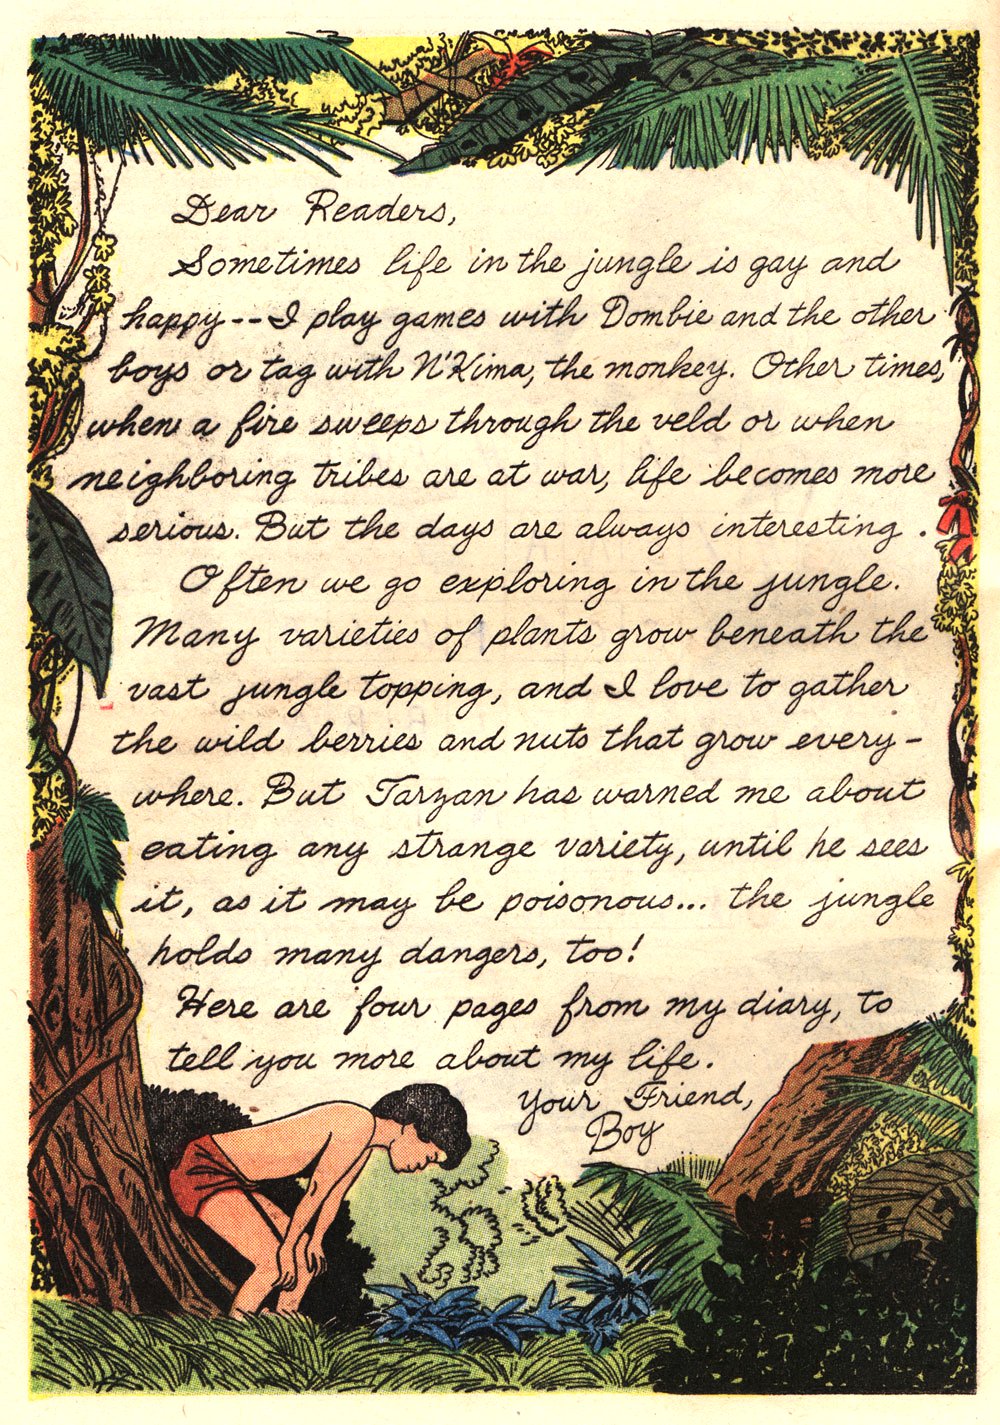 Dear Readers,
Sometimes life in the jungle is gay and
happy--I play games with Dombie and the other
boys or tag with N'Kima, the monkey. Other times,
when a fire sweeps through the veld or when
neighboring tribes are at war, life becomes more
serious. But the days are always interesting.
Often we go exploring in the jungle.
Many varieties of plants grow beneath the
vast jungle topping, and I love to gather
the wild berries and nuts that grow every-
where. But Tarzan has warned me about
eating any strange variety, until he sees
it, as it may be poisonous... the jungle
holds many dangers, too!
Here are four pages from my diary, to
tell you more about my life.
Your Friend,
Boy